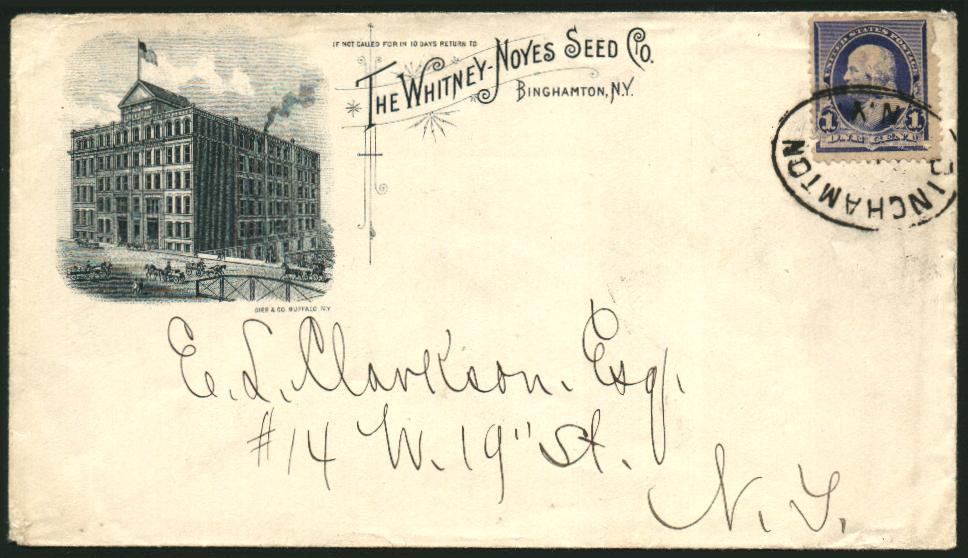 IF NOT CALLED FOR IN 10 DAYS RETURN TO
THE WHITNEY-NOYES SEED CO.
BINGHAMTON, N.Y.
UNITED STATES POSTAGE
1 1
ONE CENT
BINGHAMTON
N.Y.
GIES & CO. BUFFALO. N.Y.
E. L. Clarkson. Esq.
#14 W. 19" St.
N. Y.